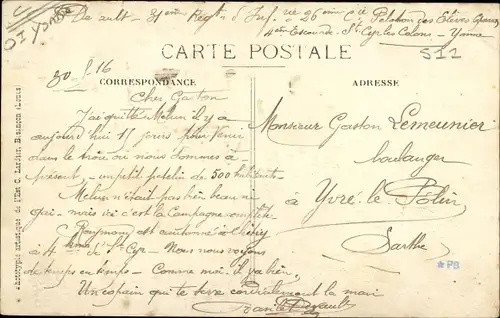 Derault - 31ème Régt d'Inf. rie 26 ème Cie Peloton des Elèves
4ème Escouade. St Cyr les Colons - Yonne
CARTE POSTALE
511
CORRESPONDANCE
ADRESSE
Cher Gaston
J'ai quitté Melun il y a
aujourd'hui 15 jours pour venir
dans le trou ou nous sommes à
présent, un petit patelin de 500 habitants
Melun n'était pas bien beau ni
gai - mais ici c'est la Campagne complète
est cantonné à Chéry
à 4 kms de St Cyr - Nous nous voyons
de temps en temps - Comme moi il va bien,
Un copain qui te serre cordialement la main
Monsieur Gaston Lemeunier
boulanger
à Yvré le Pôlin
Sarthe
*PB
Phototypie artistique de l'Est C. Lardier, Besançon (Doubs)